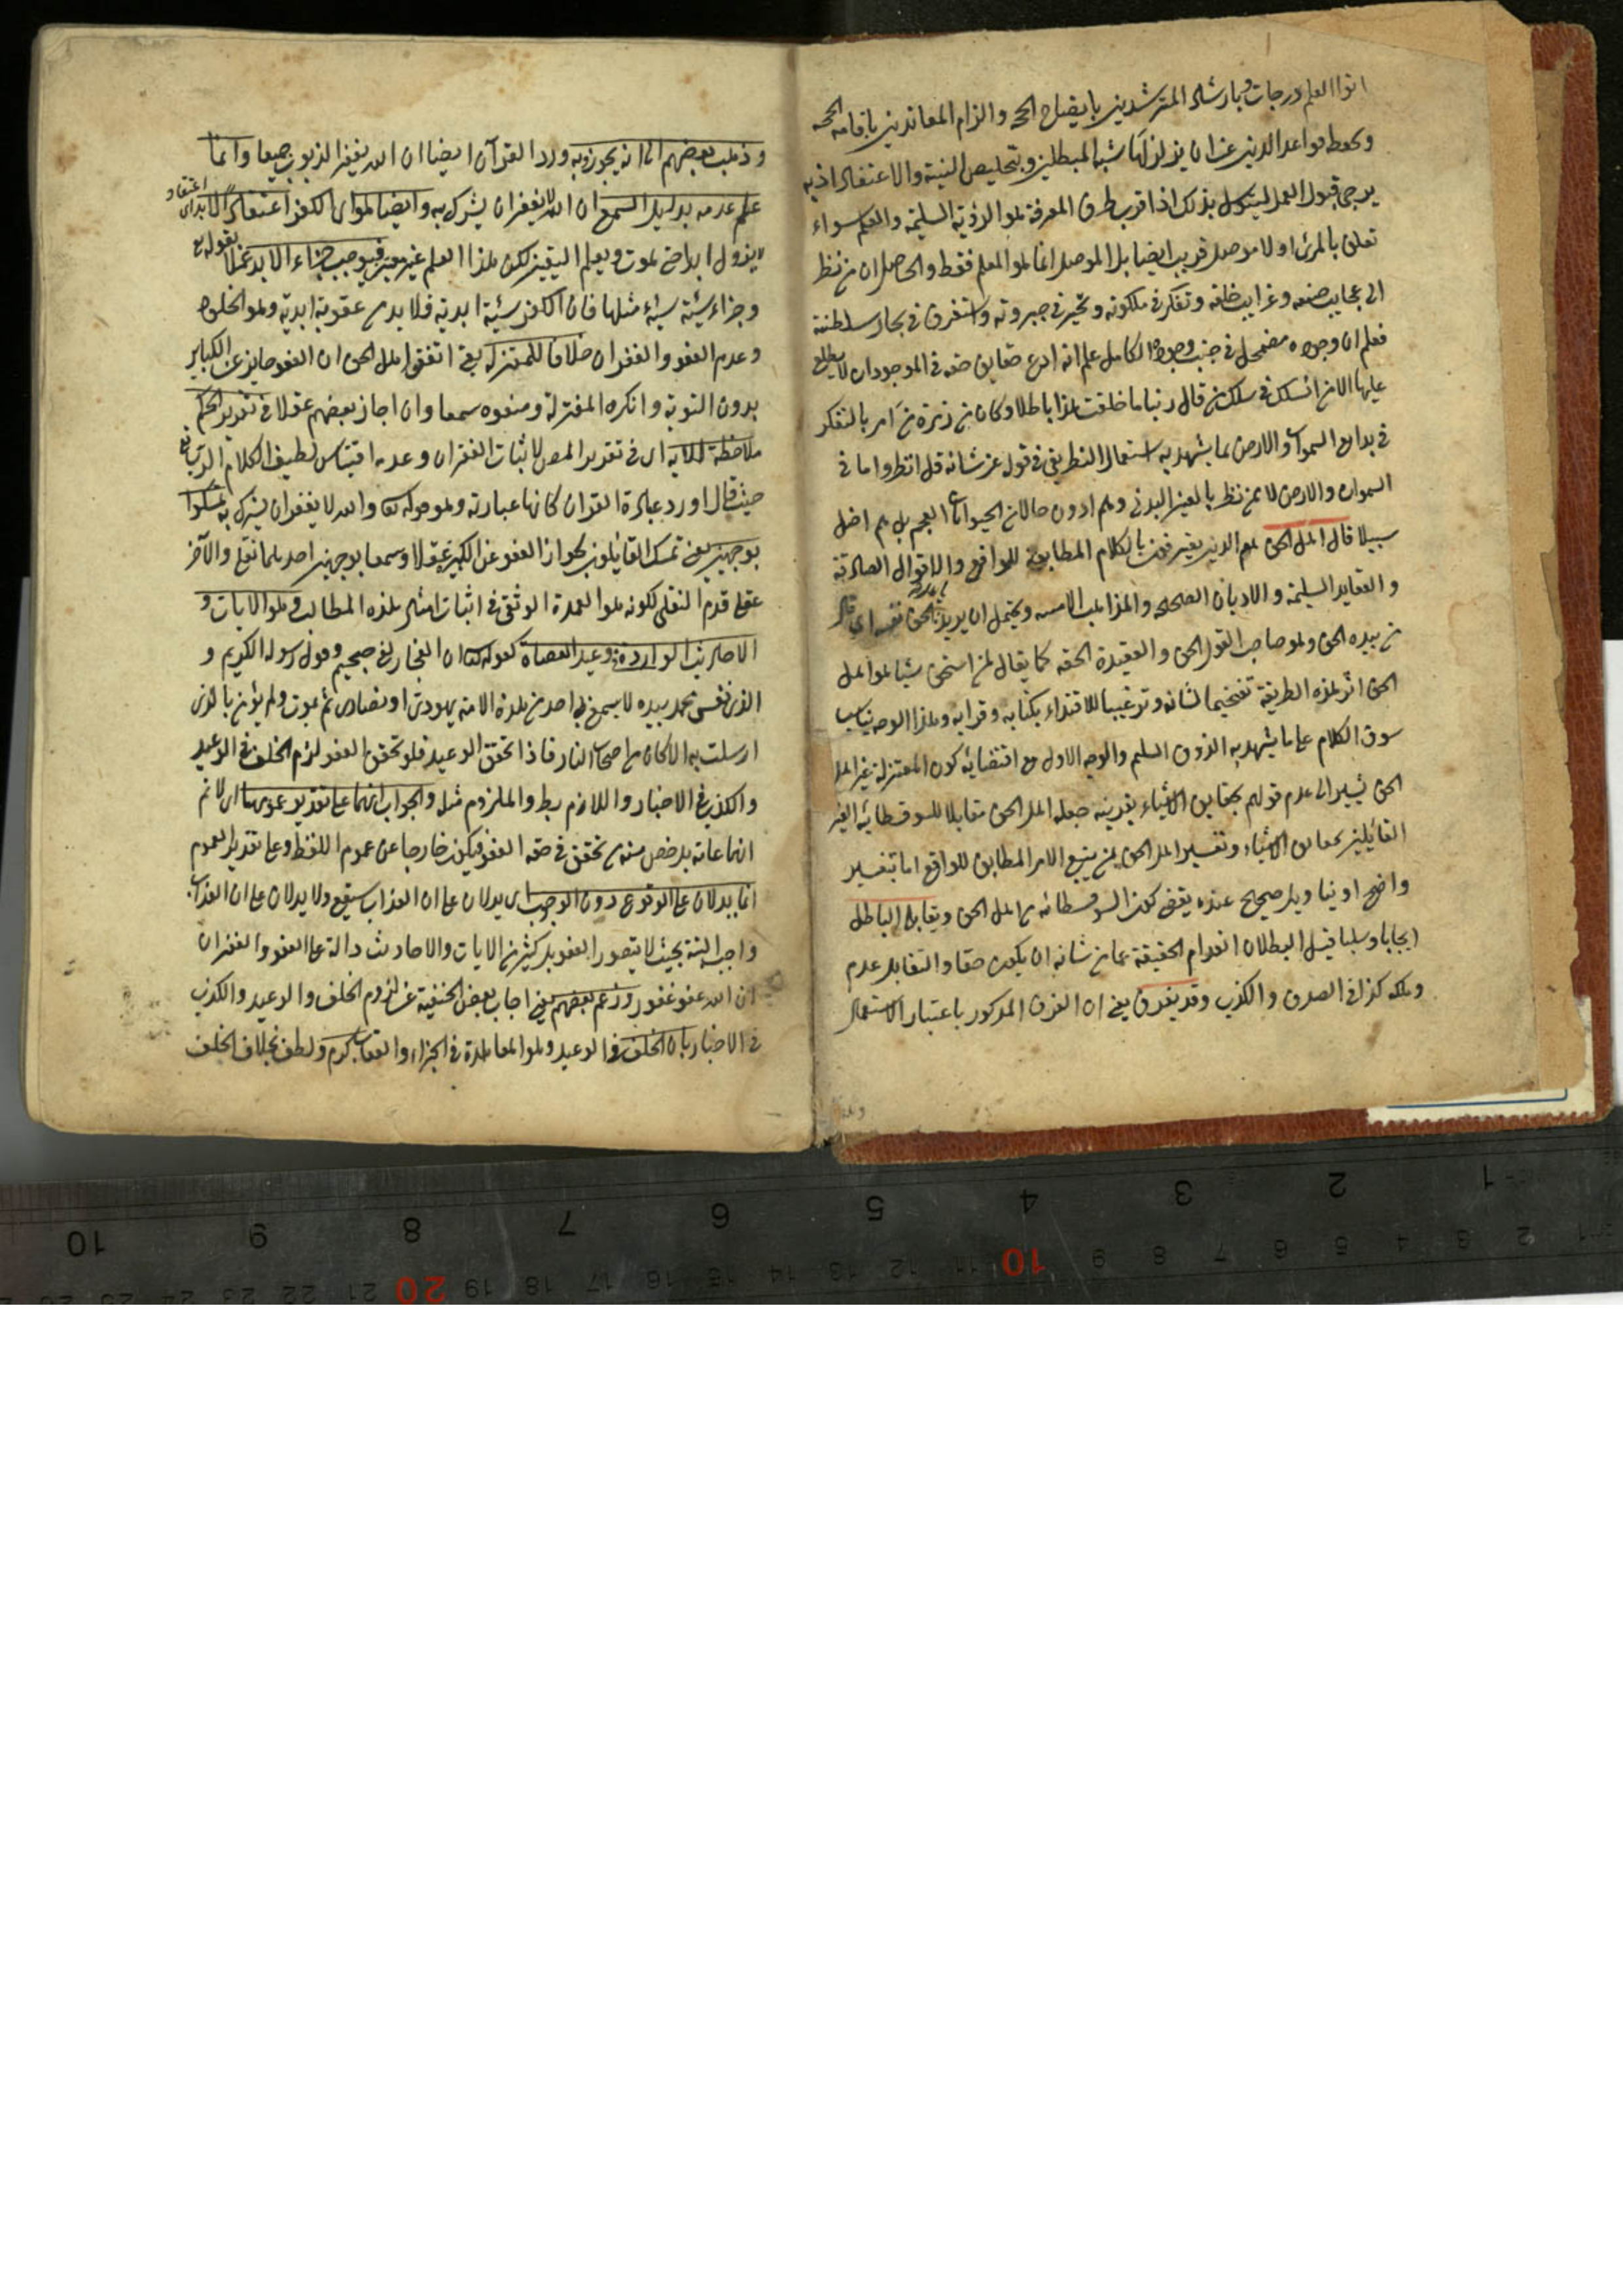 اتوا العلم درجات وبارشاد المسترشدين بايضاح الحجه والزام المعاندين باقامه الحجه
وبحفظ قواعد الدين عن ان يزلزلها شبه المبطلين وبتخليص النية والاعتقاد اذ به
يرجى قبول العمل بذلك اذا قرب طرق المعرفة هو الرؤية السليمة والعلم سواء
تعلق بالمرئى اولا موصل قريب ايضا بل الموصل انما هو العلم فقط والحاصل ان من نظر
الى عجايب صنعه وغرايب خلقه وتفكر فى ملكوته وتحير فى جبروته واستغرق فى بحار سلطنته
فعلم ان وجوده مضمحل فى جنب وجوده الكامل علم انه ادع حقايق حقه فى الموجودات لا يطلع
عليها الا من انسلك فى سلك من قال ربنا ما خلقت هذا باطلا وكان من زمرة من امر بالتفكر
فى بدايع السموات والارض بما يشهد به استعمال النظر بفى فى قوله عز شانه قل انظروا ما فى
السموات والارض لا بمن نظر بالعين البدنى وهم ادون حالا من الحيوانات العجم بل هم اضل
سبيلا قال اهل الحق هم الذين يعترفون بالكلام المطابق للواقع والاقوال الصادقة
والعقايد السليمة والاديان الصحيحه والمذاهب ويحتمل ان يريد بالحق نفسه اى قال
من بيده الحق وهو صاحب القول الحق والعقيدة الحقه كما يقال لمن استحق شيئا هو اهل
الحق اثر هذه الطريقة تفخيما لشانه وترغيبا للاقتداء بكتابه وقرانه وهذا الوجه يناسب
سوق الكلام على ما يشهد به الذوق السليم والوجه الاول مع اقتضائه كون المعتزلة غير اهل
الحق يشير الى عدم قولهم بحقايق الاشياء بقرينة جعله اهل الحق مقابلا للسوفسطائية الغير
القائلين بحقايق الاشياء وتفسير اهل الحق بمن يتبع الامر المطابق للواقع اما تفسير
واضح او بناويل صحيح عنده يقتضى كون السوفسطائيه من اهل الحق ويقابله الباطل
ايجابا وسلبا قيل البطلان انعدام الحقيقة عما من شانه ان يكون حقا والتقابل عدم
وملكه كذا فى الصدق والكذب وقد يفرق يعنى ان الفرق المذكور باعتبار الاستعمال
وذهب بعضهم الى انه يجوز وبه ورد القرآن ايضا ان الله يغفر الذنوب جميعا وانما
علم عدمه بدليل السمع ان الله لا يغفر ان يشرك به وايضا هو اى الكفر اعتقاد الابد اى اعتقاد
لا يزول ابدا حتى يموت ويعلم اليقين لكن هذا العلم غير معتبر فيوجب جزاء الابد عملا بقوله تع
وجزاء سيئة سيئة مثلها فان الكفر سيئة ابدية فلا بد من عقوبة ابدية وهو الخلود
وعدم العفو والغفران خلافا للمعتزلة يعنى اتفق اهل الحق ان العفو جايز عن الكباير
بدون التوبة وانكره المعتزلة ومنعوه سمعا وان اجاز بعضهم عقلا فى تقرير الحكم
ملاحظة للاية اى فى تقرير المص لاثبات الغفران وعدمه اقتباس لطيف للكلام الربانى
حيث قال اورد عبارة القران كانها عبارته وهو قوله تعا والله لا يغفر ان يشرك به تمسكوا
بوجهين يعنى تمسك القايلون بجواز العفو عن الكبيرة عقلا وسمعا بوجهين احدهما نقلى والآخر
عقلى قدم النقلى لكونه هو العمدة الوثقى فى اثبات امثال هذه المطالب وهو الايات و
الاحاديث الواردة فى وعيد العصاة كقوله تعا ان الفجار لفى جحيم وقول رسوله الكريم و
الذى نفس محمد بيده لا يسمع بى احد من هذه الامة يهودى او نصارى ثم يموت ولم يؤمن بالذى
ارسلت به الا كان من اصحاب النار فاذا تحقق الوعيد فلو تحقق العفو لزم الخلف فى الوعيد
والكذب فى الاخبار واللازم بط والملزوم مثله والجواب انهما على تقدير عمومها اى لا نم
انها عامة بل خص منه من تحقق فى حقه العفو فيكون خارجا عن عموم اللفظ وعلى تقدير العموم
انما يدلان على الوقوع دون الوجوب اى يدلان على ان العذاب سيقع ولا يدلان على ان العذاب
واجب البتة بحيث لا يتصور العفو بل كثير من الايات والاحاديث دالة على العفو والغفران
ان الله عفو غفور وزعم بعضهم يعنى اجاب بعض الحنفية عن لزوم الخلف والوعيد والكذب
فى الاخبار بان الخلف فى الوعيد وهو المعاهدة فى الجزاء والعقاب كرم ولطف بخلاف الخلف